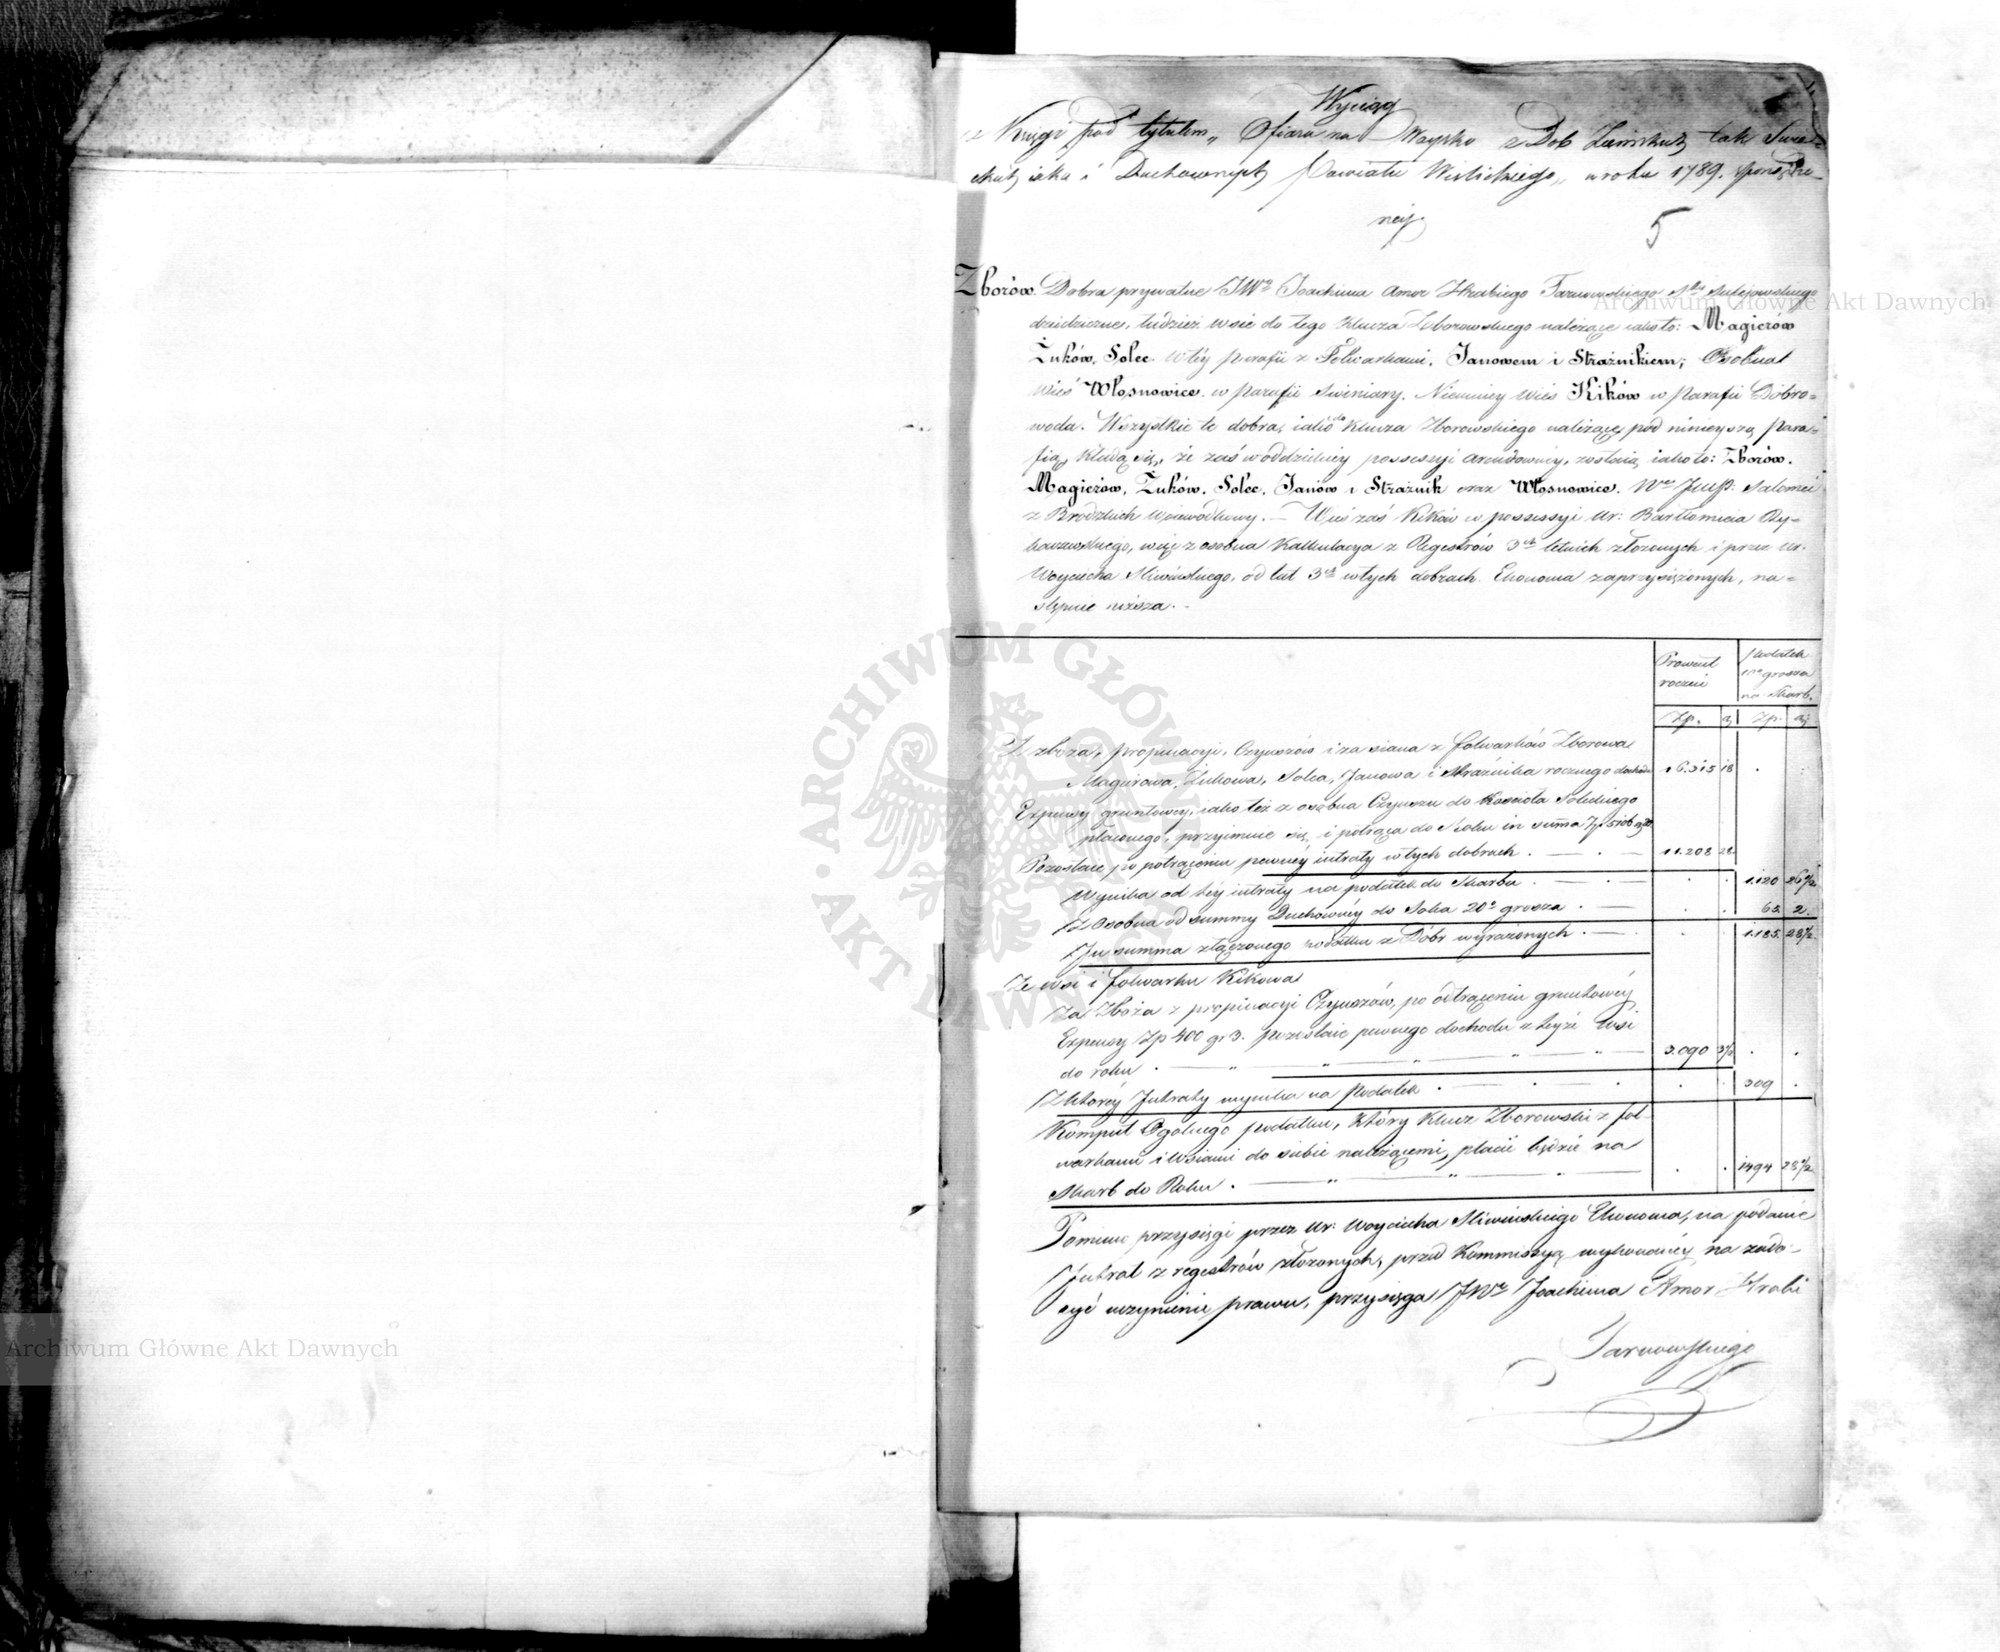 Wyciąg
z Księgi pod tytułem „Ofiara na Woysko z Dob Ziemskich tak Świe-
ckich iako i Duchownych Powiatu Wiślickiego„ w roku 1789. sporządzo-
néj.
5
Zborów. Dobra prywatne JWo Joachima Amor Hrabiego Tarnowskiego Sty Sulejowskiego
dziedziczne, tudzież wsie do tego Klucza Zborowskiego należące iako to: Magierów
Żuków, Solec. w téy parafii z Folwarkami, Janowem i Strażnikiem; Osobna
wieś Włosnowice. w Parafii Swiniary. Niemniey wieś Kików w Parafii Dobro-
woda. Wszystkie te dobra, iako do Klucza Zborowskiego należące, pod ninieyszą Para-
fią, kładą się, że zaś w oddzielney possessyi arendowney, zostaią, iako to: Zborów.
Magierów, Żuków, Solec, Janów i Strażnik oraz Włosnowice. Wey Jmsp: Salomei
z Brodzkich Woiewodkowy. — Wieś zaś Kików w possessyi Ur: Bartłomieia
więc z osobna Kalkulacya z Regestrów 3ch letnich złożonych i przez Ur.
Woyciecha Sliwińskiego, od lat 3ch w tych dobrach Ekonoma zaprzysiężonych, na-
stępnie niższa.
Prowent roczni
podatek 10o grosza na Skarb.
Zp. g Zp. g
Z zboża, propinacyi, Czynszów i za siana z folwarków Zborowa
Magierowa, Żukowa, Solca, Janowa i Strażnika rocznego dochodu 16.315 18
Expensy gruntowey, iako też z osobna Czynszu do Kościoła Soleckiego
płaconego, przyimuie się, i potrąca do Roku in suma Zp 5106 g 20
Pozostaie po potrąceniu pewnéy intraty w tych dobrach . — . — 11.208 28
Wynika od téy intraty na podatek do Skarbu . — . — 1.120 26½
Z Osobna od summy Duchownéy do Solca 20o grosza . — 65. 2.
In summa złączonego podatku z Dóbr wyrażonych . — . 1.185. 28½
Ze wsi i folwarku Kikowa
Za Zboża z propinacyi Czynszów, po odtrąceniu gruntowéy
Expensy Zp 400 gr 3. pozostaie pewnego dochodu z teyże Wsi
do roku . — „ — „ — „ — 3.090 3½
Z któréy Intraty wynika na Podatek . — . — . 309
Komput Ogolnego podatku, który Klucz Zborowski z fol-
warkami i Wsiami do siebie należącemi, płacić będzie na
Skarb do Roku . — „ — „ — 1494 28½
Pomimo przysięgi przez Ur: Woyciecha Sliwińskiego Ekonoma, na podanie
Intrat z regestrów złożonych, przed Kommissyą wykonanéy na zado-
syć uczynienie prawu, przysięga JWo Joachima Amor Hrabi
Tarnowskiego
Archiwum Główne Akt Dawnych
Archiwum Główne Akt Dawnych
ARCHIWUM GŁÓWNE AKT DAWNYCH